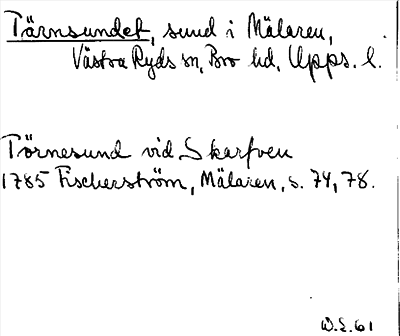 Tärnsundet, sund i Mälaren,
Västra Ryds sn, Bro hd, Upps. l.
Törnesund vid Skarfven
1785 Fischerström, Mälaren, s. 74, 78.
W.E. 61